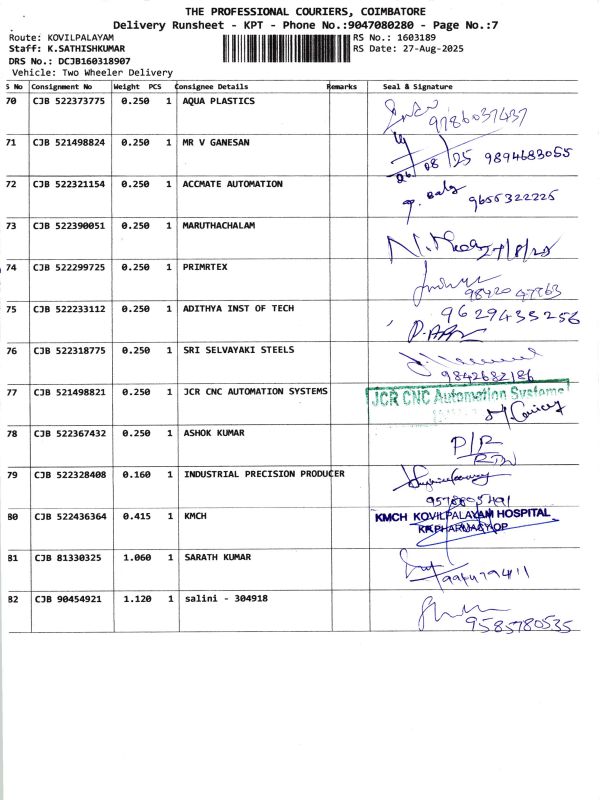 THE PROFESSIONAL COURIERS, COIMBATORE
Delivery Runsheet - KPT - Phone No.:9047080280 - Page No.:7
Route: KOVILPALAYAM RS No.: 1603189
Staff: K.SATHISHKUMAR RS Date: 27-Aug-2025
DRS No.: DCJB160318907
Vehicle: Two Wheeler Delivery
S No Consignment No Weight PCS Consignee Details Remarks Seal & Signature
70 CJB 522373775 0.250 1 AQUA PLASTICS
9786037437
71 CJB 521498824 0.250 1 MR V GANESAN
26/08/25 9894683055
72 CJB 522321154 0.250 1 ACCMATE AUTOMATION
9655322225
73 CJB 522390051 0.250 1 MARUTHACHALAM
27/8/25
74 CJB 522299725 0.250 1 PRIMRTEX
98420 47963
75 CJB 522233112 0.250 1 ADITHYA INST OF TECH
9629433256
76 CJB 522318775 0.250 1 SRI SELVAYAKI STEELS
9842682186
77 CJB 521498821 0.250 1 JCR CNC AUTOMATION SYSTEMS
JCR CNC Automation Systems
78 CJB 522367432 0.250 1 ASHOK KUMAR
P/R
79 CJB 522328408 0.160 1 INDUSTRIAL PRECISION PRODUCER
9578805791
80 CJB 522436364 0.415 1 KMCH
KMCH KOVILPALAYAM HOSPITAL
81 CJB 81330325 1.060 1 SARATH KUMAR
82 CJB 90454921 1.120 1 salini - 304918
9585780535